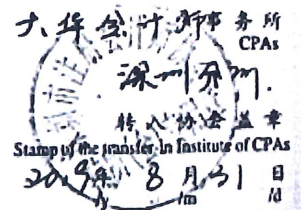 大华会计师事务所
CPAs
深圳分所
转入协会盖章
Stamp of the transfer-in Institute of CPAs
2019年 8月31日
/y /m /d